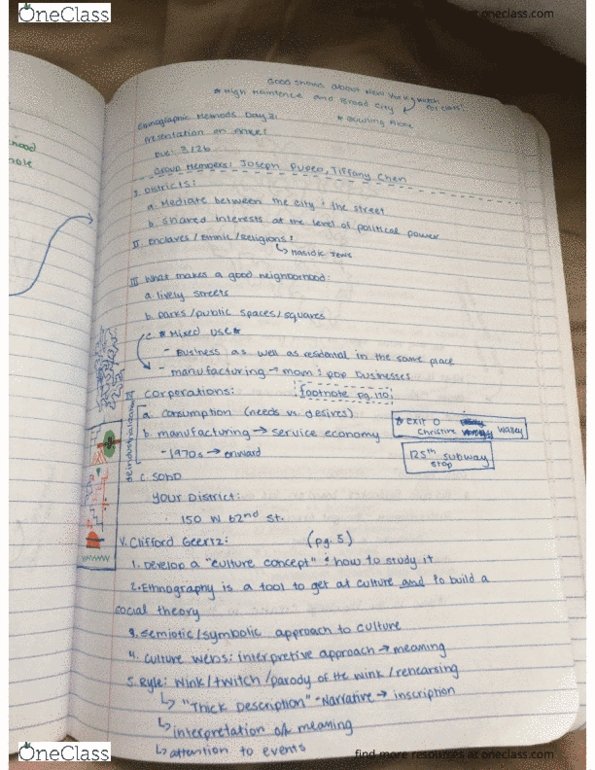 OneClass
find more resources at oneclass.com
Good shows about New York
★ High Maintence and Broad City
for class!
★ Bowling Alone
Ethnographic Methods Day 2:
Presentation on street
Due: 3/26
Group Members: Joseph Pupeo, Tiffany Chen
I. Districts:
a. Mediate between the city & the street
b. shared interests at the level of political power
II. Enclaves/Ethnic/Religions:
↳ Hasidic Jews
III. What makes a good neighborhood:
a. lively streets
b. parks/public spaces/squares
c. ★ Mixed Use ★
- Business as well as residental in the same place
- manufacturing → mom & pop businesses
corperations:
footnote pg. 110
a. consumption (needs vs desires)
b. manufacturing → service economy
- 1970s → onward
deindustrialization
★ exit 0
Christine Wasey
125th subway stop
c. SOHO
Your District:
150 W 62nd St.
V. Clifford Geertz: (pg. 5)
1. Develop a "culture concept" & how to study it
2. Ethnography is a tool to get at culture and to build a
social theory
3. semiotic/symbolic approach to culture
4. culture webs: interpretive approach → meaning
5. Ryle: wink/twitch/parody of the wink/rehearsing
↳ "Thick Description" - Narrative → inscription
↳ interpretation of meaning
↳ attention to events
OneClass
find more resources at oneclass.com